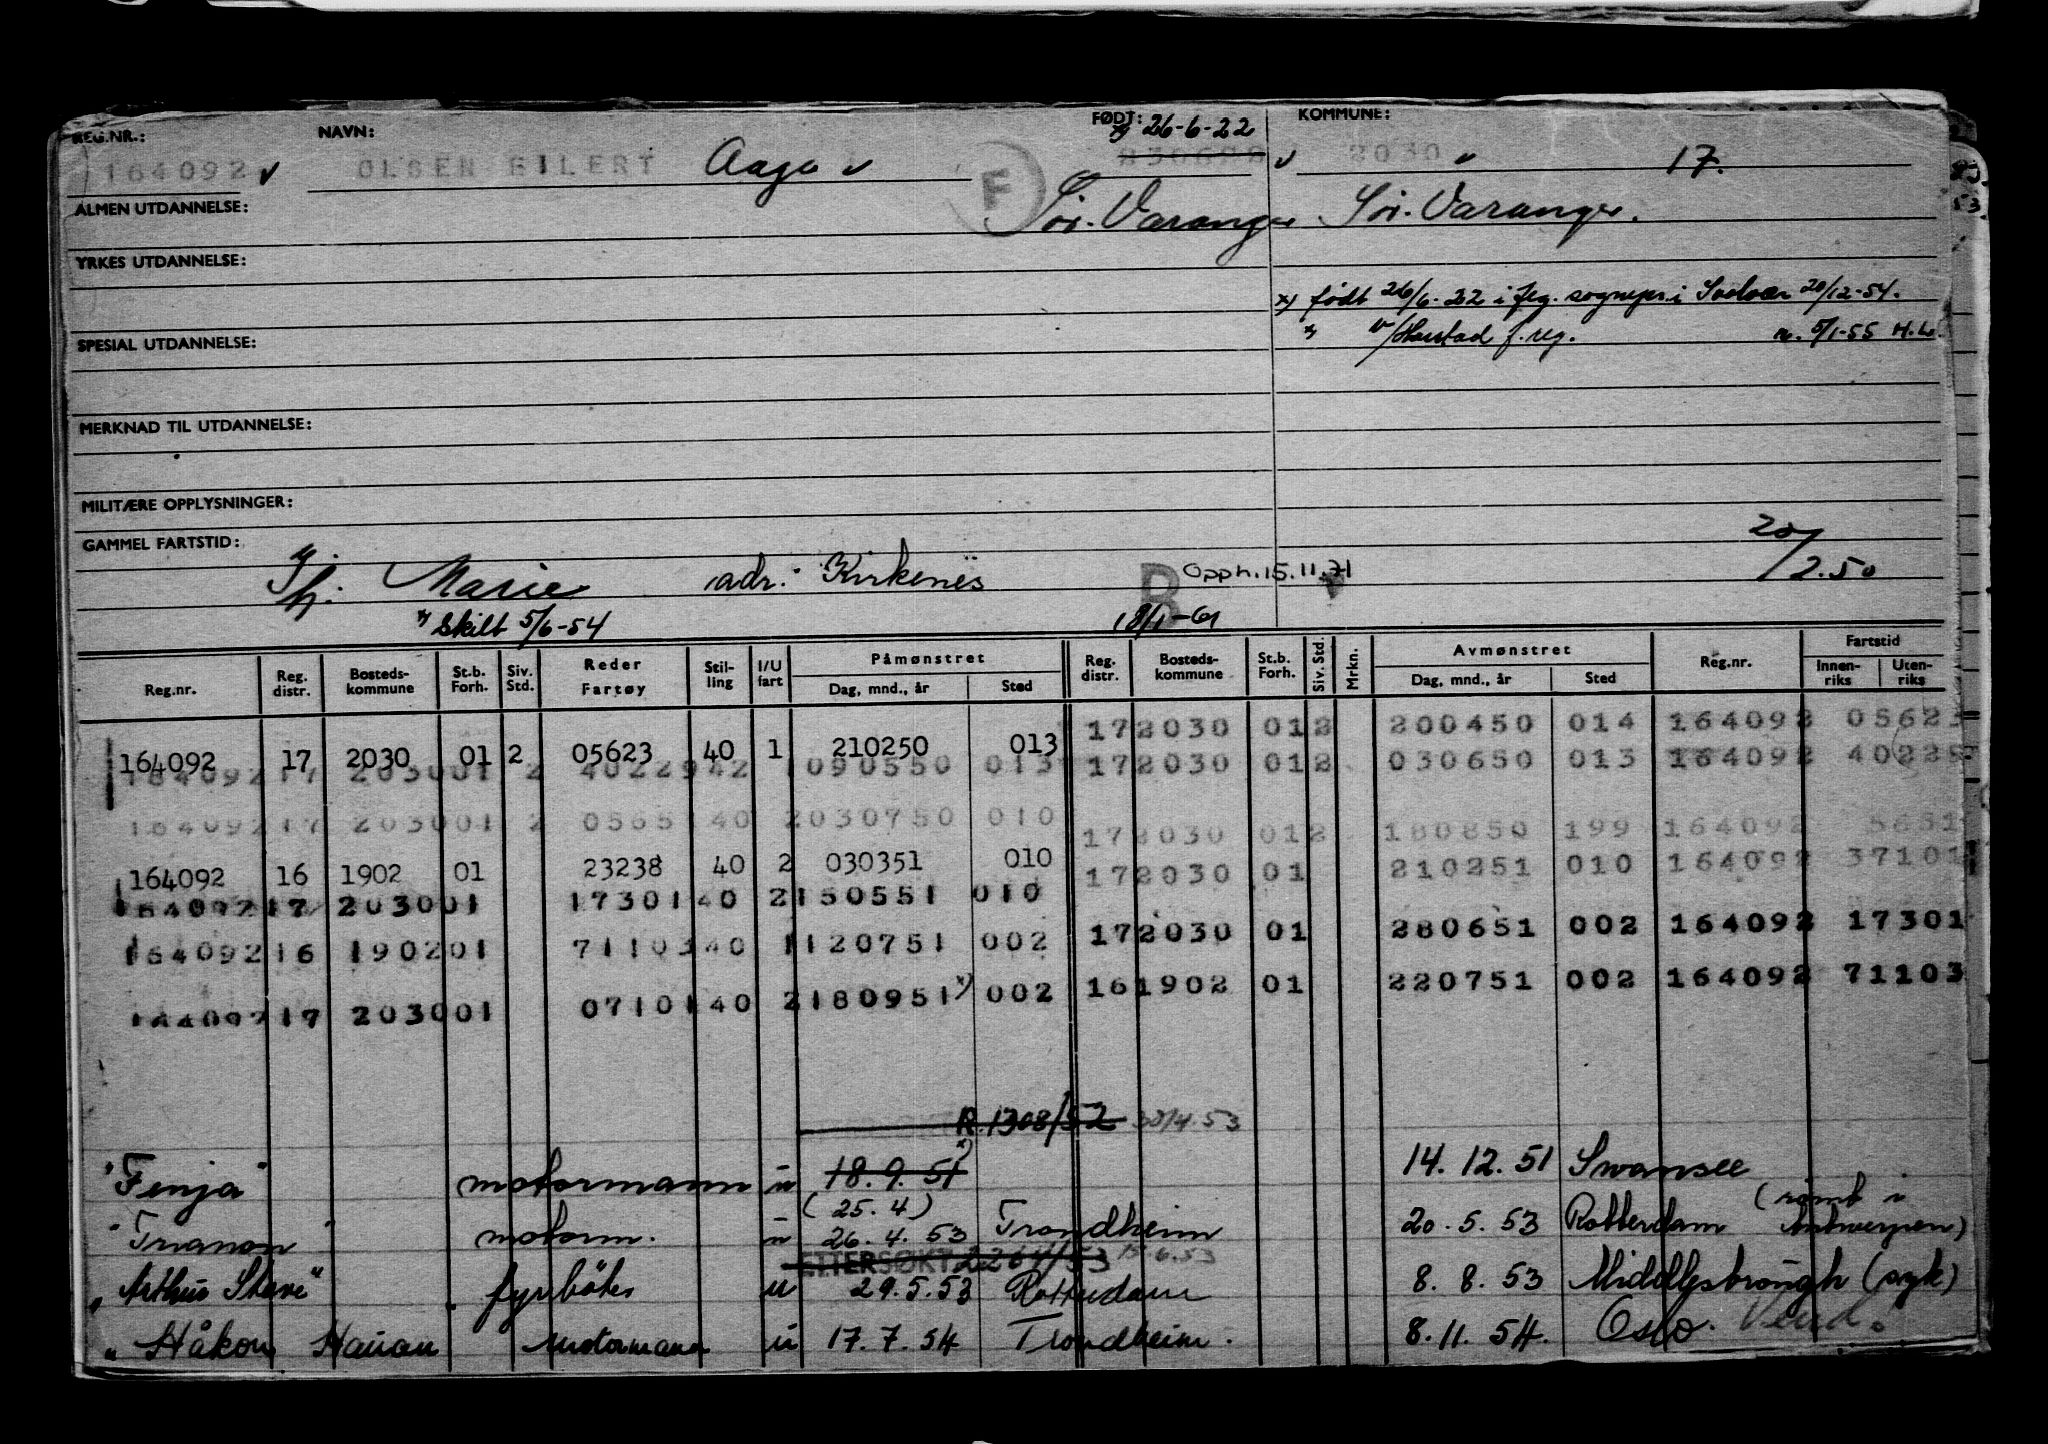 REG.NR.: NAVN: FØDT: x) 26-6-22 KOMMUNE:
164092 v OLSEN EILERT Aage v F v 2030 v 17.
ALMEN UTDANNELSE: Sör. Varanger Sör. Varanger.
YRKES UTDANNELSE:
x) født 26/6-22 i flg. sognepr. i Svolvær 20/12-54.
SPESIAL UTDANNELSE: v/Harstad f. reg. 5/1-55 H.L.
MERKNAD TIL UTDANNELSE:
MILITÆRE OPPLYSNINGER:
GAMMEL FARTSTID: 20/2.50
Marie adr. Kirkenes B Opph. 15.11.71
x) Skilt 5/6-54 18/1-61
Reg.nr. Reg. distr. Bosteds-kommune St.b. Forh. Siv. Std. Reder Fartøy Stil-ling I/U fart Påmønstret Dag, mnd., år Sted Reg. distr. Bosteds-kommune St.b. Forh. Siv. Std. Mrkn. Avmønstret Dag, mnd., år Sted Reg.nr. Fartstid Innen-riks Uten-riks
172030 012 200450 014 164092 05623
164092 17 2030 01 2 05623 40 1 210250 013
164092 17 2030 01 2 40229 42 1 090550 013 172030 012 030650 013 164092 40229
164092 17 2030 01 2 0565 40 2 030750 010 172030 012 180850 199 164092 5651
164092 16 1902 01 23238 40 2 030351 010 172030 01 210251 010 164092 37101
164092 17 2030 01 17301 40 2 150551 010
172030 01 280651 002 164092 17301
164092 16 1902 01 71103 40 1 120751 002
161902 01 220751 002 164092 71103
164092 17 2030 01 07101 40 2 180951 x) 002
R. 1308/52 30/4.53
"Fenja" motormann u 18.9.51 x) 14.12.51 Swansee
(25.4) (rømt i
"Trianon" motorm. u 26.4.53 Trondheim 20.5.53 Rotterdam Antwerpen)
ETTERSØKT 2264/53 15.6.53
"Arthur Stove" fyrböter u 29.5.53 Rotterdam 8.8.53 Middlesbrough (syk)
"Håkon Hauan motormann u 17.7.54 Trondheim. 8.11.54. Oslo. Vend.